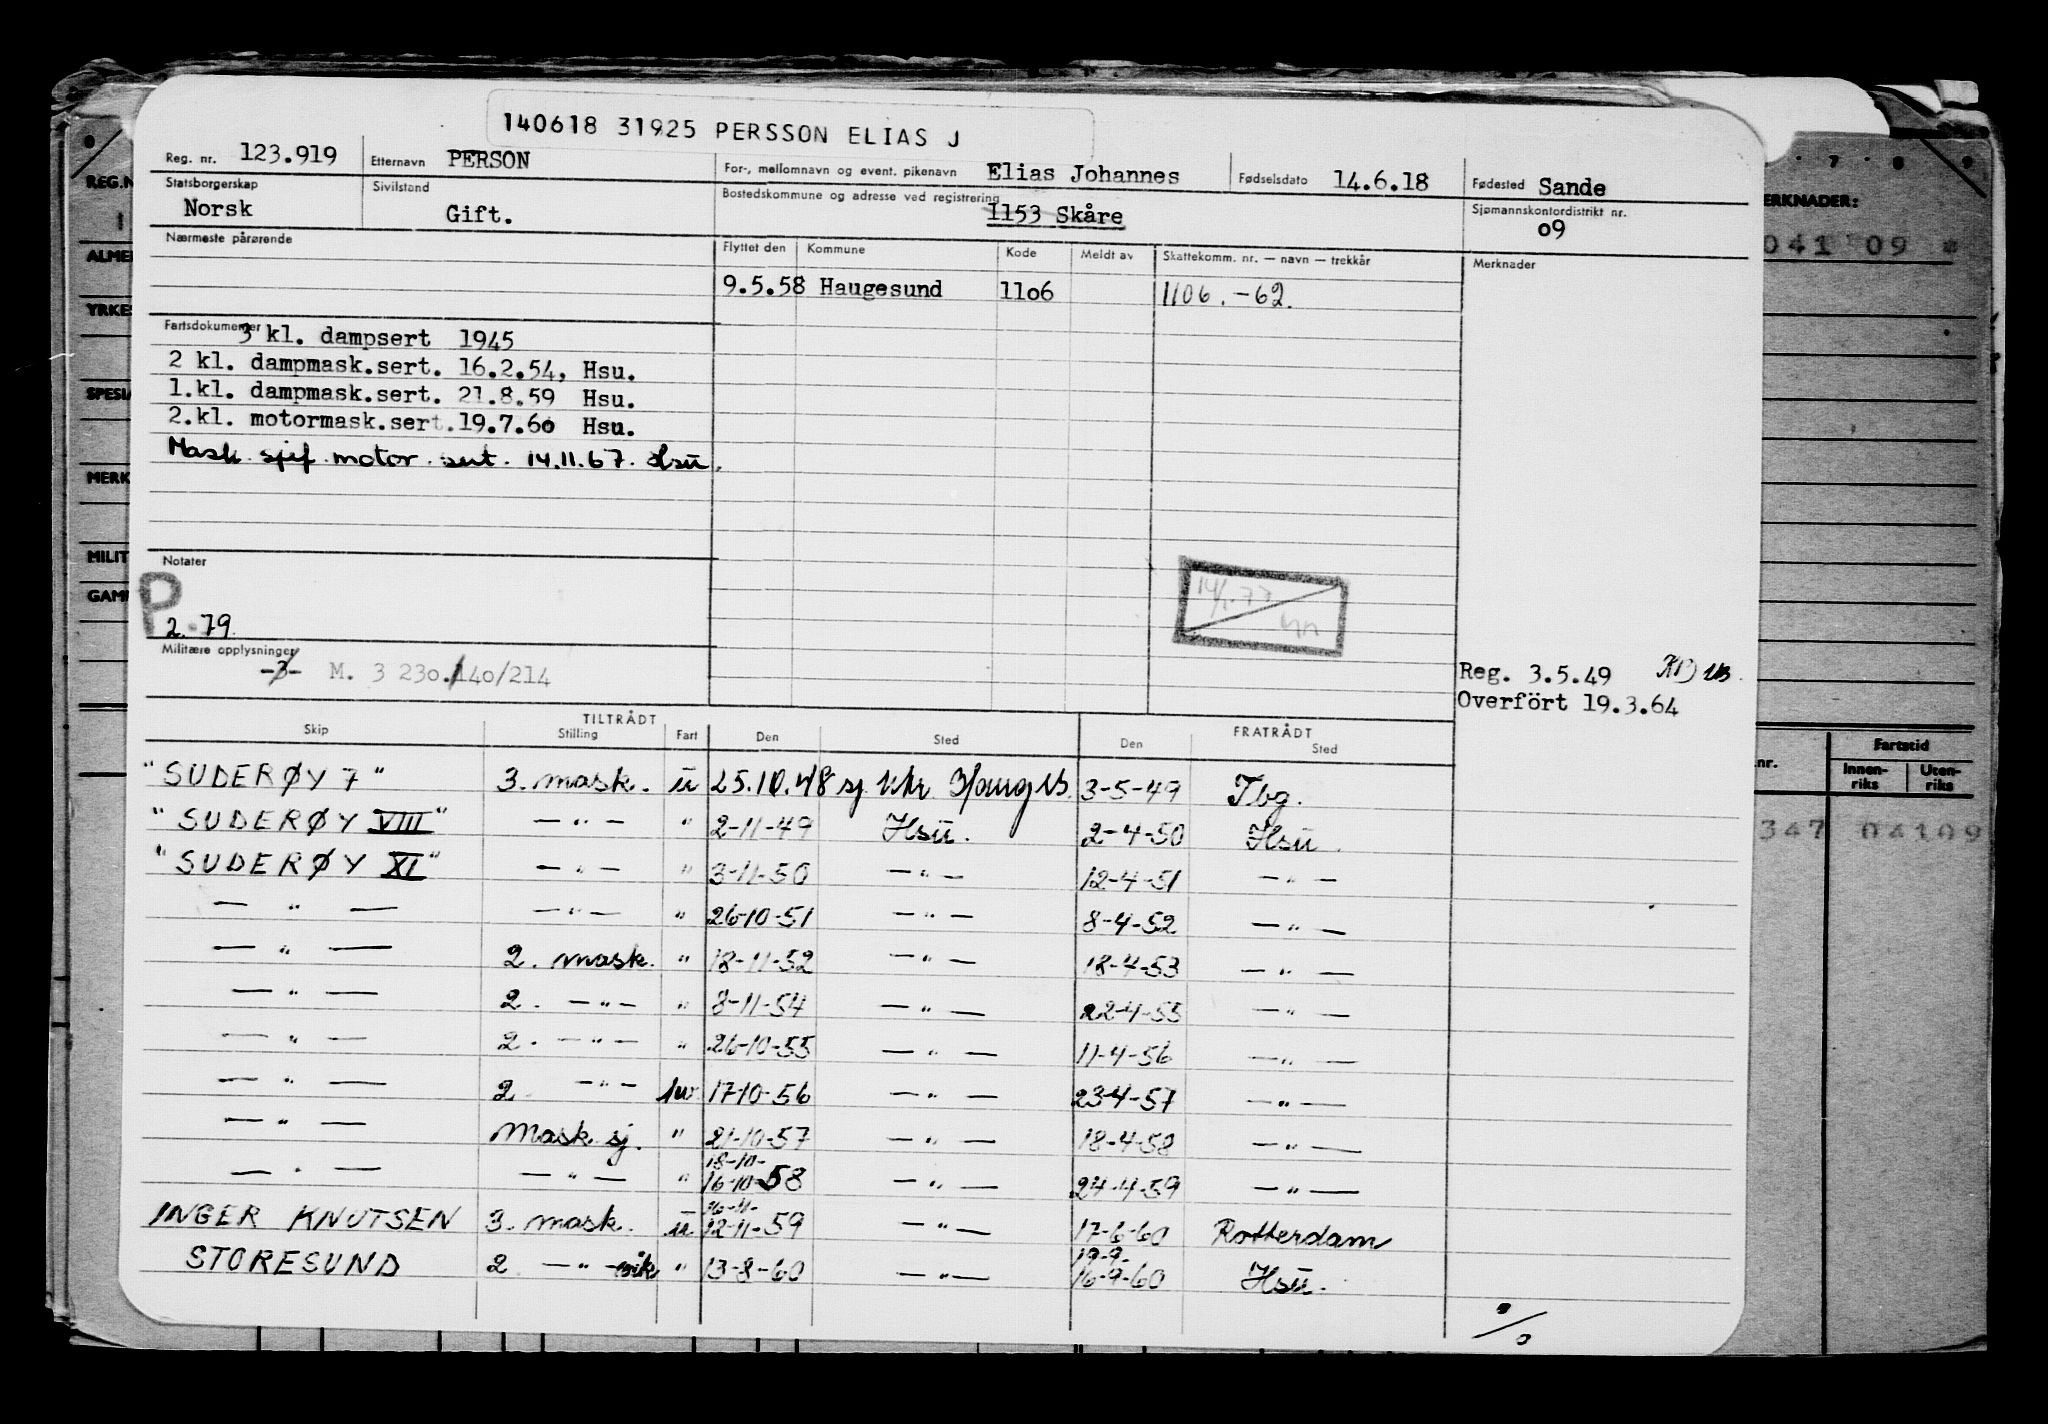 140618 31925 PERSSON ELIAS J
Reg. nr. 123.919 Etternavn PERSON For-, mellomnavn og event. pikenavn Elias Johannes Fødselsdato 14.6.18 Fødested Sande
Statsborgerskap Norsk Sivilstand Gift. Bostedskommune og adresse ved registrering 1153 Skåre Sjømannskontordistrikt nr. 09
Nærmeste pårørende Flyttet den Kommune Kode Meldt av Skattekomm. nr. — navn — trekkår Merknader
9.5.58 Haugesund 11o6 1106. -62.
Fartsdokumenter 3 kl. dampsert 1945
2 kl. dampmask.sert. 16.2.54, Hsu.
1.kl. dampmask.sert. 21.8.59 Hsu.
2.kl. motormask.sert. 19.7.60 Hsu.
Mask. sjef. motor. sert. 14.11.67. Hsu.
Notater
P
2.-79.
14/1-77
Militære opplysninger
-3- M. 3 230./140/214
Reg. 3.5.49
Overfört 19.3.64
TILTRÅDT FRATRÅDT
Skip Stilling Fart Den Sted Den Sted
"SUDERØY 7" 3. mask. u 25.10.48 3-5-49 Tbg.
"SUDERØY VIII" — " — " 2-11-49 Hsu. 2-4-50 Hsu.
"SUDERØY XI" — " — " 3-11-50 — " — 12-4-51 — " —
— " — — " — " 26-10-51 — " — 8-4-52 — " —
— " — 2. mask. " 18-11-52 — " — 18-4-53 — " —
— " — 2. — " — " 8-11-54 — " — 22-4-55 — " —
— " — 2. — " — " 26-10-55 — " — 11-4-56 — " —
— " — 2 — " — 17-10-56 — " — 23-4-57 — " —
— " — Mask. sj. " 21-10-57 — " — 18-4-58 — " —
18-10-
— " — — " — " 16-10-58 — " — 24-4-59 — " —
16-11-
INGER KNUTSEN 3. mask. u 12-11-59 — " — 17-6-60 Rotterdam
19-9-
STORESUND 2 — " — " 13-8-60 — " — 16-9-60 Hsu.
REG.N
ALME
YRKES
SPESIA
MERK
MILIT
GAM
7 8 9
ERKNADER:
041 09
nr. Fartstid
Innen-riks Uten-riks
347 04109